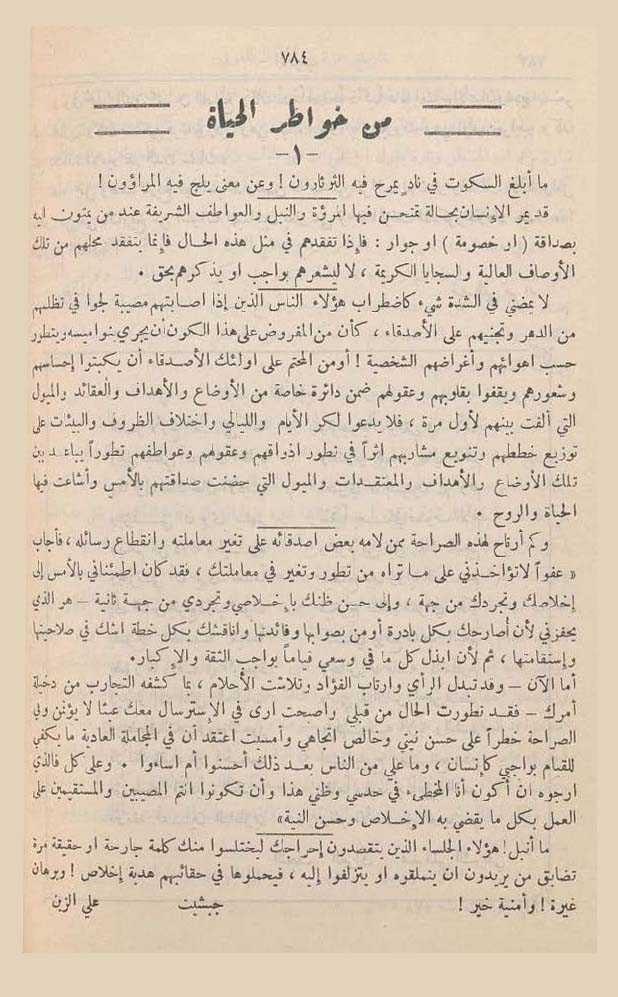 ٧٨٤
من خواطر الحياة
-١-
ما أبلغ السكوت في نادٍ يمرح فيه الثرثارون ! وعن معنى يلج فيه المراؤون !
قد يمر الإنسان بحالة تمتحن فيها المرؤة والنبل والعواطف الشريفة عند من يمتون اليه
بصداقة ( او خصومة ) او جوار : فإذا تفقدهم في مثل هذه الحال فإنما يتفقد محلهم من تلك
الأوصاف العالية والسجايا الكريمة ، لا ليشعرهم بواجب او يذكرهم بحق .
لا يمضني في الشدة شيء كاضطراب هؤلاء الناس الذين إذا اصابتهم مصيبة لجوا في تظلمهم
من الدهر وتجنيهم على الأصدقاء ، كأن من المفروض على هذا الكون أن يجري بنواميسه ويتطور
حسب اهوائهم وأغراضهم الشخصية ! أو من المحتم على اولئك الأصدقاء أن يكبتوا إحساسهم
وشعورهم ويقفوا بقلوبهم وعقولهم ضمن دائرة خاصة من الأوضاع والأهداف والعقائد والميول
التي ألفت بينهم لأول مرة ، فلا يدعوا لكر الأيام والليالي واختلاف الظروف والبيئات على
توزيع خططهم وتنويع مشاربهم اثراً في تطور اذواقهم وعقولهم وعواطفهم تطوراً يباعد بين
تلك الأوضاع والأهداف والمعتقدات والميول التي حضنت صداقتهم بالأمس وأشاعت فيها
الحياة والروح .
وكم أرتاح لهذه الصراحة ممن لامه بعض اصدقائه على تغير معاملته وانقطاع رسائله ، فأجاب
« عفواً لا تؤاخذني على ما تراه من تطور وتغير في معاملتك ، فقد كان اطمئناني بالأمس إلى
إخلاصك وتجردك من جهة ، وإلى حسن ظنك بإخلاصي وتجردي من جهة ثانية – هو الذي
يحفزني لأن أصارحك بكل بادرة أومن بصوابها وفائدتها واناقشك بكل خطة اشك في صلاحيتها
وإستقامتها ، ثم لأن ابذل كل ما في وسعي قياماً بواجب الثقة والإكبار .
أما الآن – وقد تبدل الرأي وارتاب الفؤاد وتلاشت الأحلام ، بما كشفه التجارب من دخيلة
أمرك – فقد تطورت الحال من قبلي وأصبحت ارى في الإسترسال معك عبثا لا يؤتمن وفي
الصراحة خطراً على حسن نيتي وخالص اتجاهي وأمسيت اعتقد أن في المجاملة العادية ما يكفي
للقيام بواجبي كإنسان ، وما علي من الناس بعد ذلك أحسنوا أم اساءوا . وعلى كل فالذي
ارجوه ان أكون أنا المخطىء في حدسي وظني هذا وأن تكونوا انتم المصيبين والمستقيمين على
العمل بكل ما يقضي به الإخلاص وحسن النية»
ما أنبل ! هؤلاء الجلساء الذين يتقصدون إحراجك ليختلسوا منك كلمة جارحة او حقيقة مرة
تضايق من يريدون ان يتملقوه او يتزلفوا إليه ، فيحملوها في حقائبهم هدية إخلاص ! وبرهان
غيرة ! وأمنية خير !
جبشيت
علي الزين